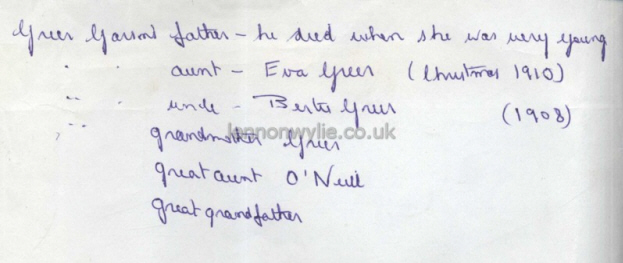 Greer Garson's father - he died when she was very young
" " aunt - Eva Greer (Christmas 1910)
" " uncle - Bertie Greer (1908)
" " grandmother Greer
leonorwylie.co.uk
great aunt O'Neill
great grandfather